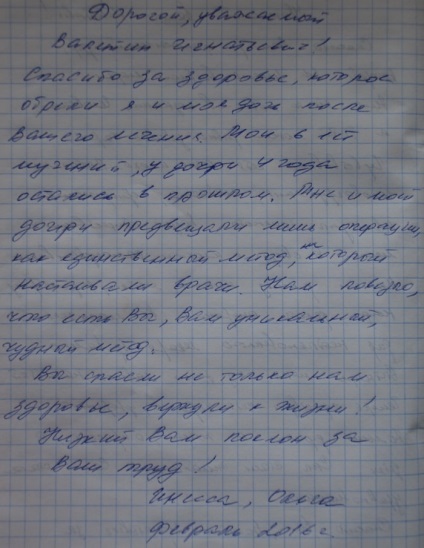 Дорогой, уважаемый
Валентин Игнатьевич!
Спасибо за здоровье, которое
обрели я и моя дочь после
Вашего лечения. Мои 6 лет
мучений, у дочери 4 года
остались в прошлом. Мне и моей
дочери предвещали лишь операции,
как единственный метод, на которой
настаивали врачи. Нам повезло,
что есть Вы, Ваш уникальный,
чудный метод.
Вы спасли не только нам
здоровье, вернули к жизни!
Низкий Вам поклон за
Ваш труд!
Инесса, Ольга
Февраль 2016 г